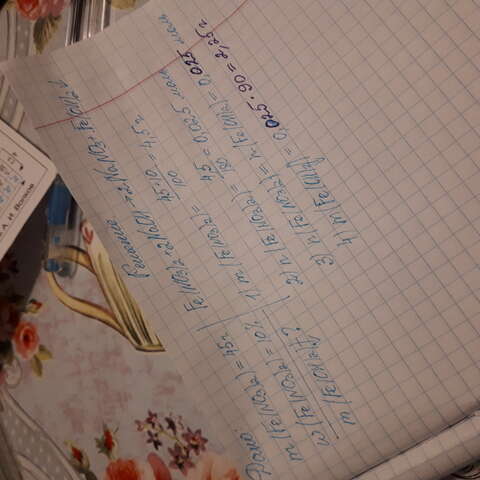 А И Волков
Решение
Дано
m (Fe(NO3)2) = 45г
w (Fe(NO3)2) = 10%
m (Fe(OH)2)↓ - ?
Fe(NO3)2 + 2NaOH → 2NaNO3 + Fe(OH)2↓
1) m (Fe(NO3)2) = 45·10/100 = 4,5г
2) n (Fe(NO3)2) = 4,5/180 = 0,025 моль
3) n (Fe(NO3)2) = n (Fe(OH)2) = 0,025 моль
4) m (Fe(OH)2) = 0,025 · 90 = 2,25г